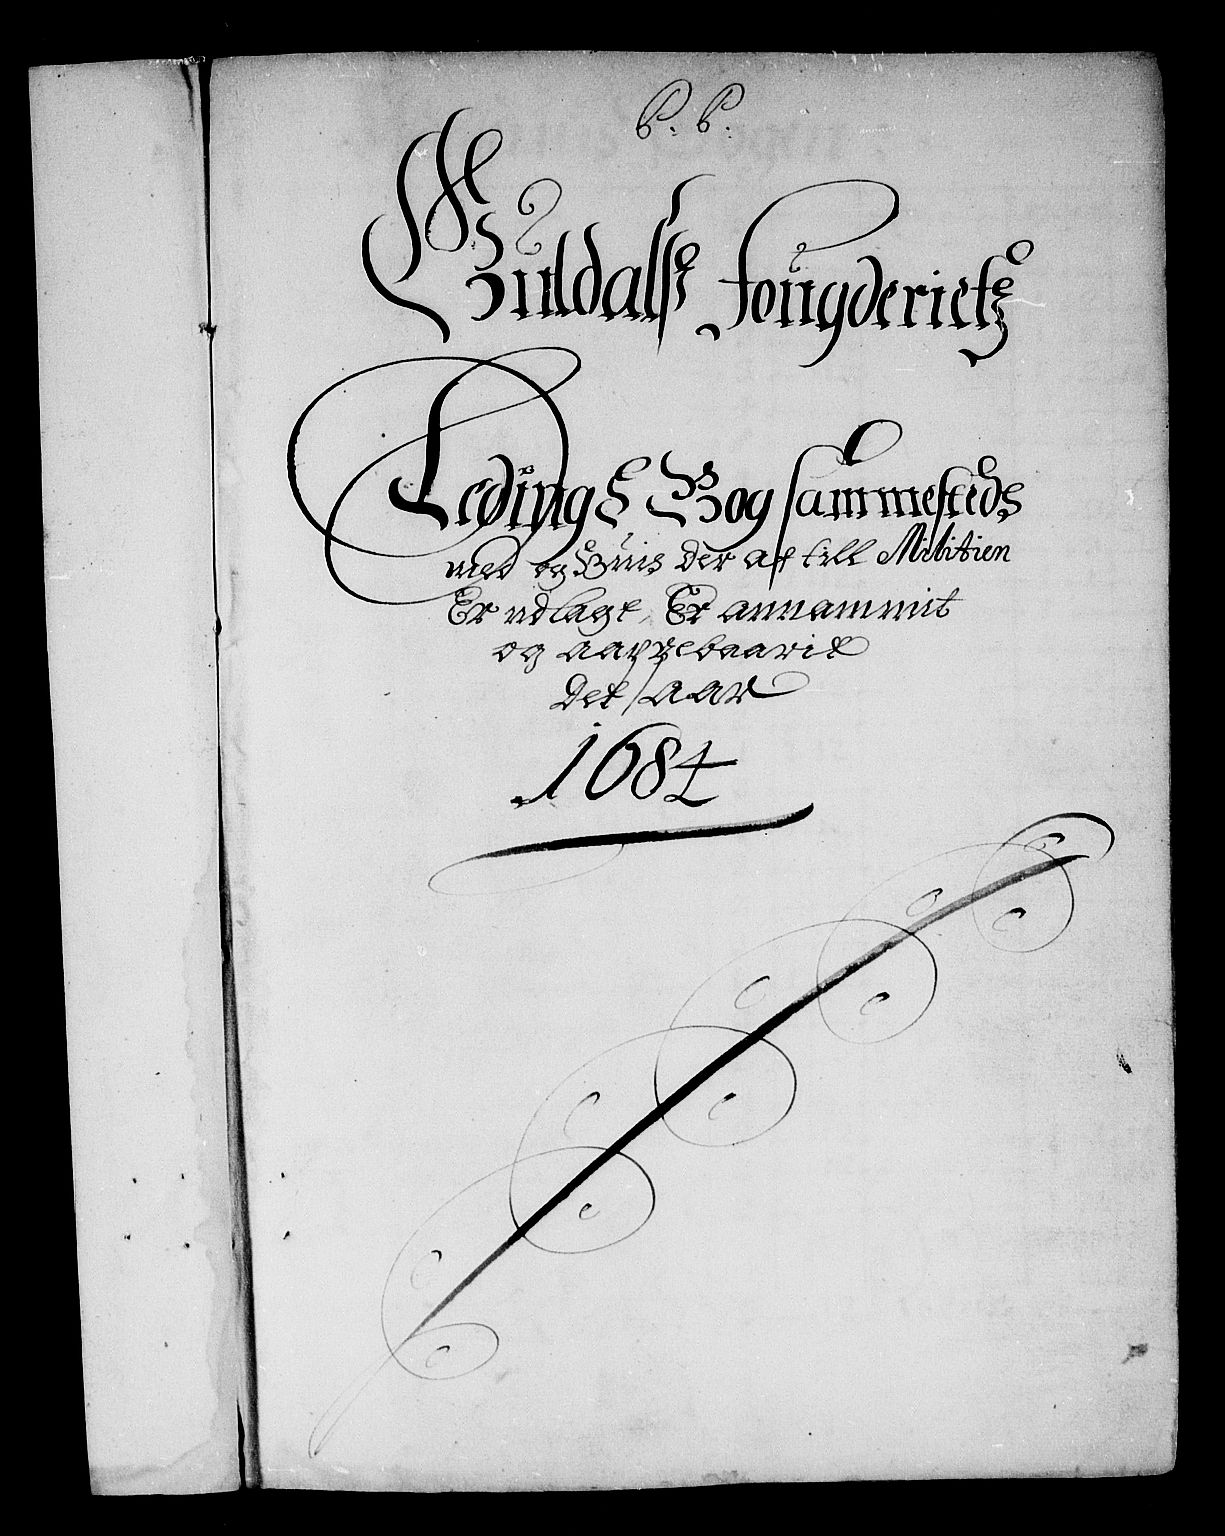 B. B.
Guldals fougderietz
Ledings Bog sammesteds
med og Huis der af till Militien
Er udlagt, Er annammit
og aappebaarit
Det aar
1684